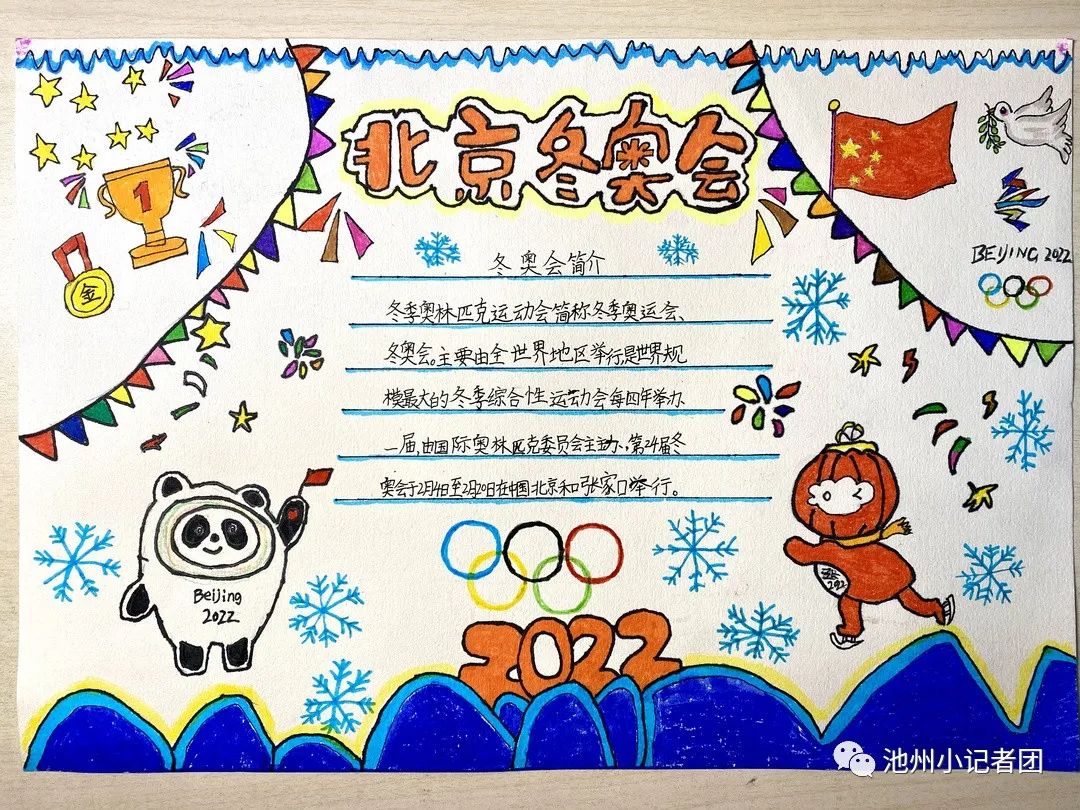 北京冬奥会
1
金
BEIJING 2022
冬奥会简介
冬季奥林匹克运动会简称冬季奥运会、
冬奥会。主要由全世界地区举行,是世界规
模最大的冬季综合性运动会每四年举办
一届,由国际奥林匹克委员会主办,第24届冬
奥会于2月4日至2月20日在中国北京和张家口举行。
Beijing
2022
2022
池州小记者团